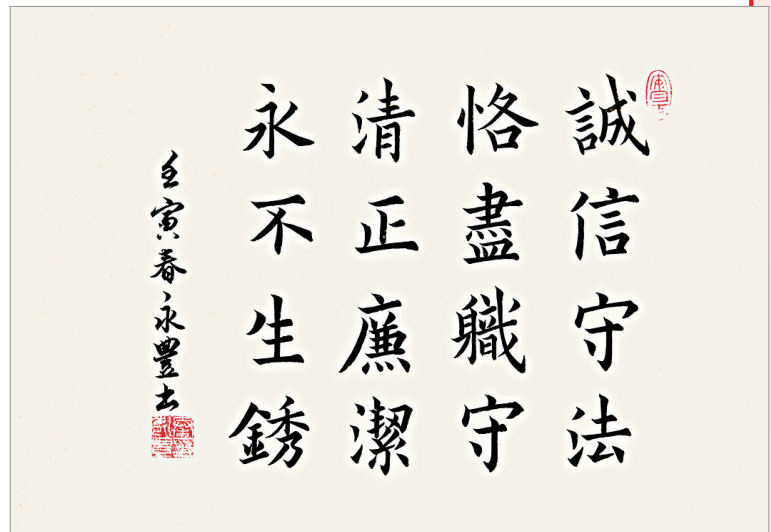 誠信守法
恪盡職守
清正廉潔
永不生銹
壬寅春永豐書